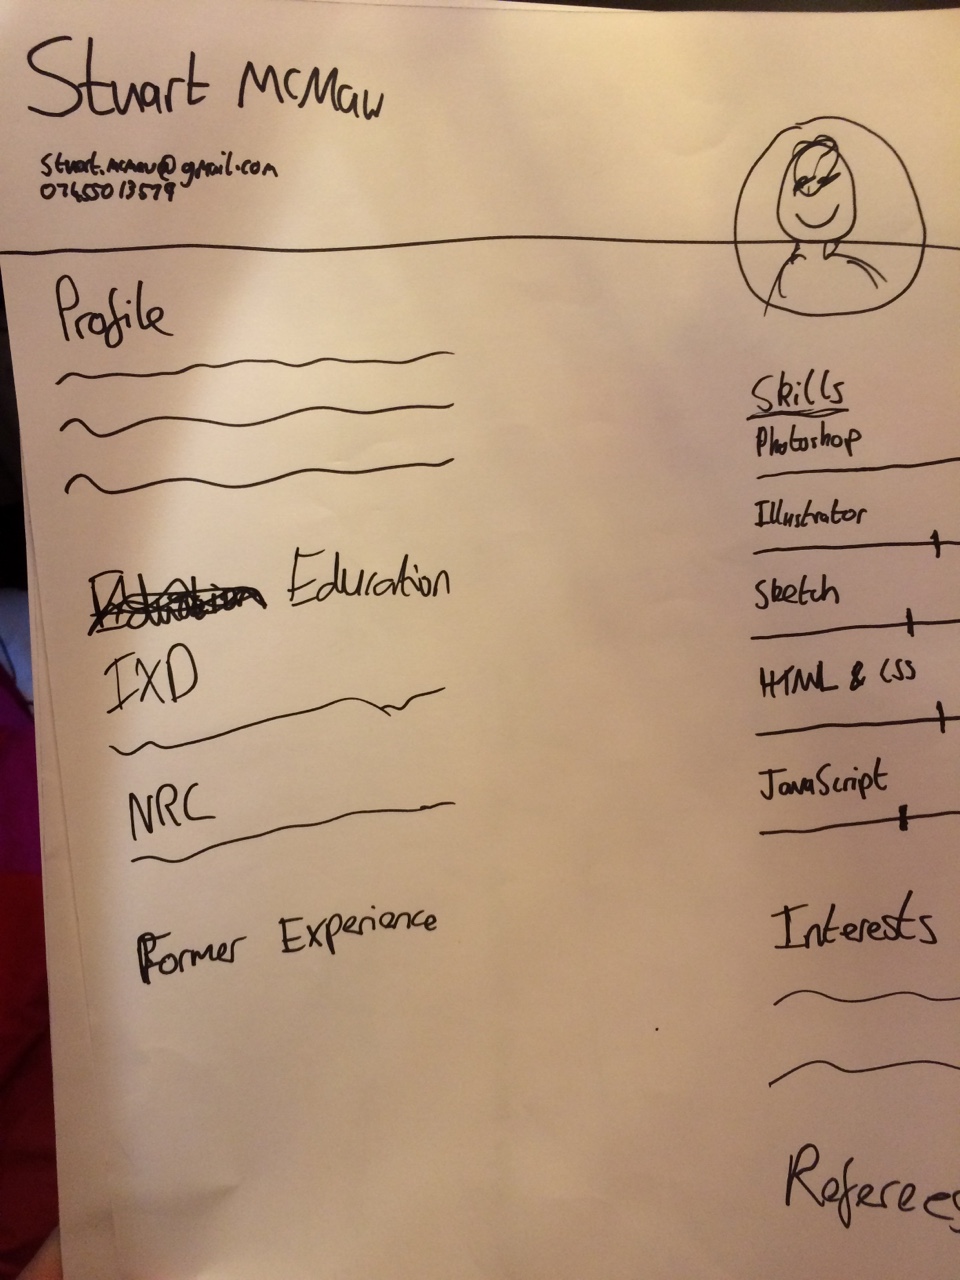 Stuart McMaw
stuart.mcmaw@gmail.com
07455013579
Profile
Education
IXD
NRC
Former Experience
Skills
Photoshop
Illustrator
Sketch
HTML & CSS
JavaScript
Interests
Referees